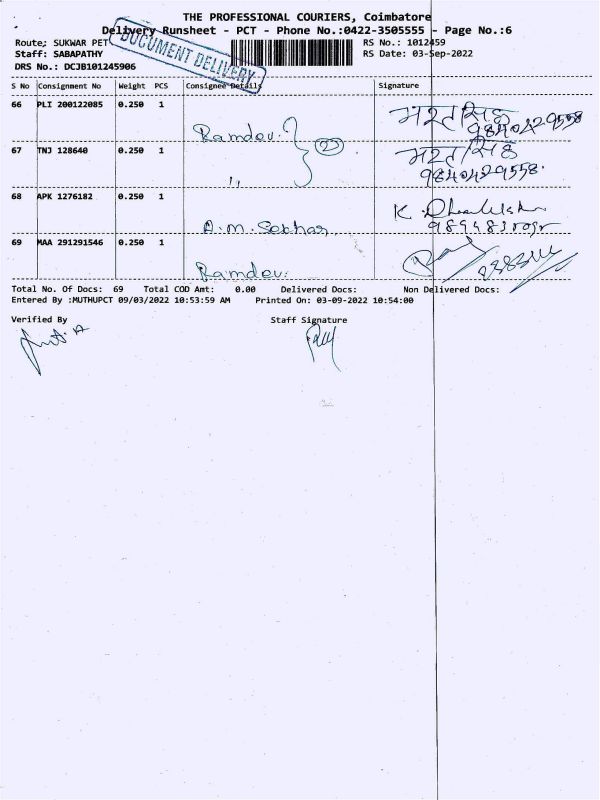 THE PROFESSIONAL COURIERS, Coimbatore
Delivery Runsheet - PCT - Phone No.:0422-3505555 - Page No.:6
Route: SUKWAR PET
RS No.: 1012459
Staff: SABAPATHY
RS Date: 03-Sep-2022
DRS No.: DCJB101245906
DOCUMENT DELIVERY
S No Consignment No Weight PCS Consignee Details Signature
66 PLI 200122085 0.250 1 Ramdev. भरत सिंह
9840429558
67 TNJ 128640 0.250 1 ,, भरत सिंह
9840429558.
68 APK 1276182 0.250 1 A.m. Sekhar K.
69 MAA 291291546 0.250 1 Ramdev.
Total No. Of Docs: 69 Total COD Amt: 0.00 Delivered Docs: Non Delivered Docs:
Entered By :MUTHUPCT 09/03/2022 10:53:59 AM Printed On: 03-09-2022 10:54:00
Verified By Staff Signature